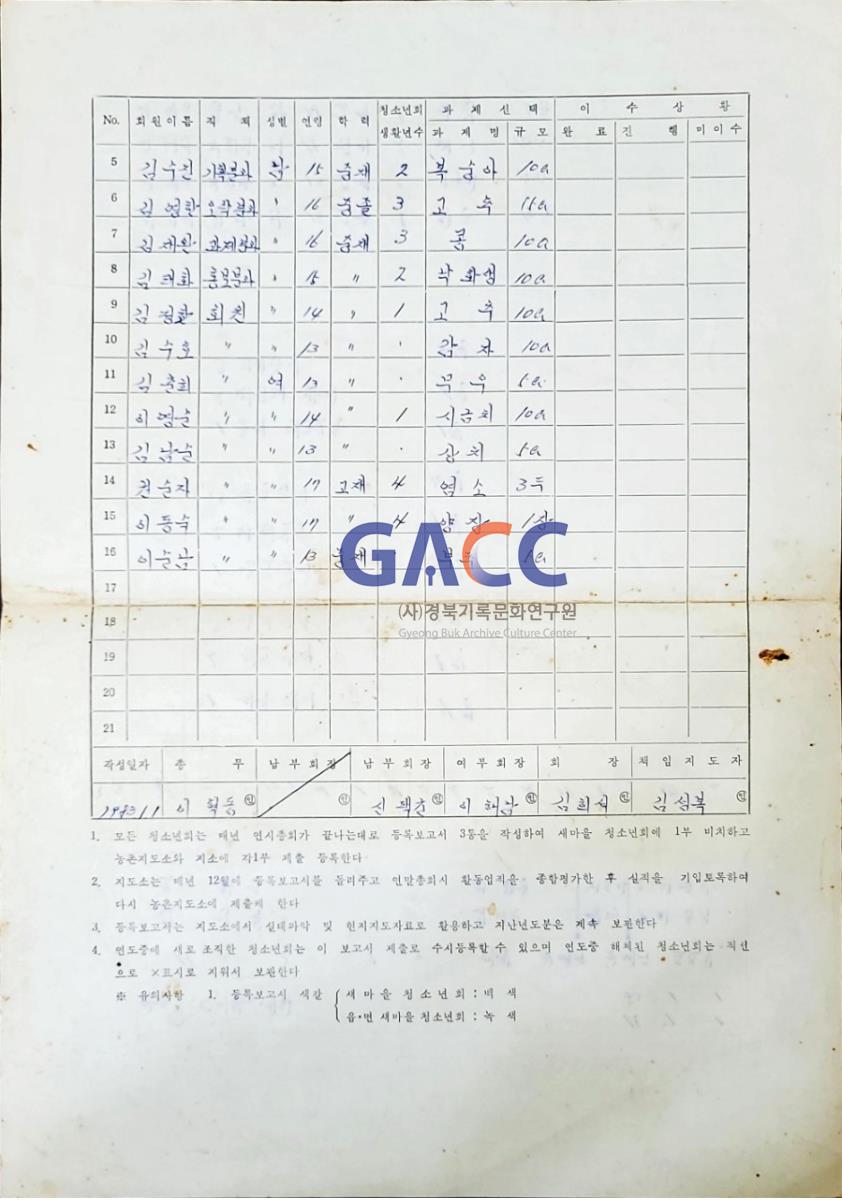 No. 회원이름 직책 성별 연령 학력 청소년회생활년수 과제선택 이수상황
과제명 규모 완료 진행 미이수
5 김수진 기록분과 남 15 중재 2 복숭아 10a
6 오락분과 〃 16 중졸 3 고추
7 과제분과 〃 16 중재 3 콩 10a
8 김태화 홍보분과 〃 15 〃 2 10a
9 회원 〃 14 〃 1 고추 10a
10 김수호 〃 〃 13 〃 · 감자 10a
11 〃 여 13 〃 · 무우 5a
12 이영순 〃 〃 14 〃 1 시금치 10a
13 김남순 〃 〃 13 〃 · 상치 5a
14 권순자 〃 〃 17 고재 4 염소 3두
15 〃 〃 17 〃 4
16 이순남 〃 〃 13 중재
17
18
19
20
21
작성일자 총무 남부회장 남부회장 여부회장 회장 책임지도자
1983.1.1 이혁동 ㊞ ㊞ ㊞ ㊞ 김희석 ㊞ 김성복 ㊞
1. 모든 청소년회는 매년 연시총회가 끝나는대로 등록보고서 3통을 작성하여 새마을 청소년회에 1부 비치하고
농촌지도소와 지소에 각1부 제출 등록한다
2. 지도소는 매년 12월에 등록보고서를 돌려주고 연말총회시 활동업적을 종합평가한 후 실적을 기입토록하여
다시 농촌지도소에 제출케 한다
3. 등록보고서는 지도소에서 실태파악 및 현지지도자료로 활용하고 지난년도분은 계속 보관한다
4. 연도중에 새로 조직한 청소년회는 이 보고서 제출로 수시등록할 수 있으며 연도중 해체된 청소년회는 적선
으로 ×표시로 지워서 보관한다
※ 유의사항 1. 등록보고서 색갈 { 새마을 청소년회 : 백색
읍·면 새마을 청소년회 : 녹색
GACC
(사)경북기록문화연구원
Gyeong Buk Archive Culture Center